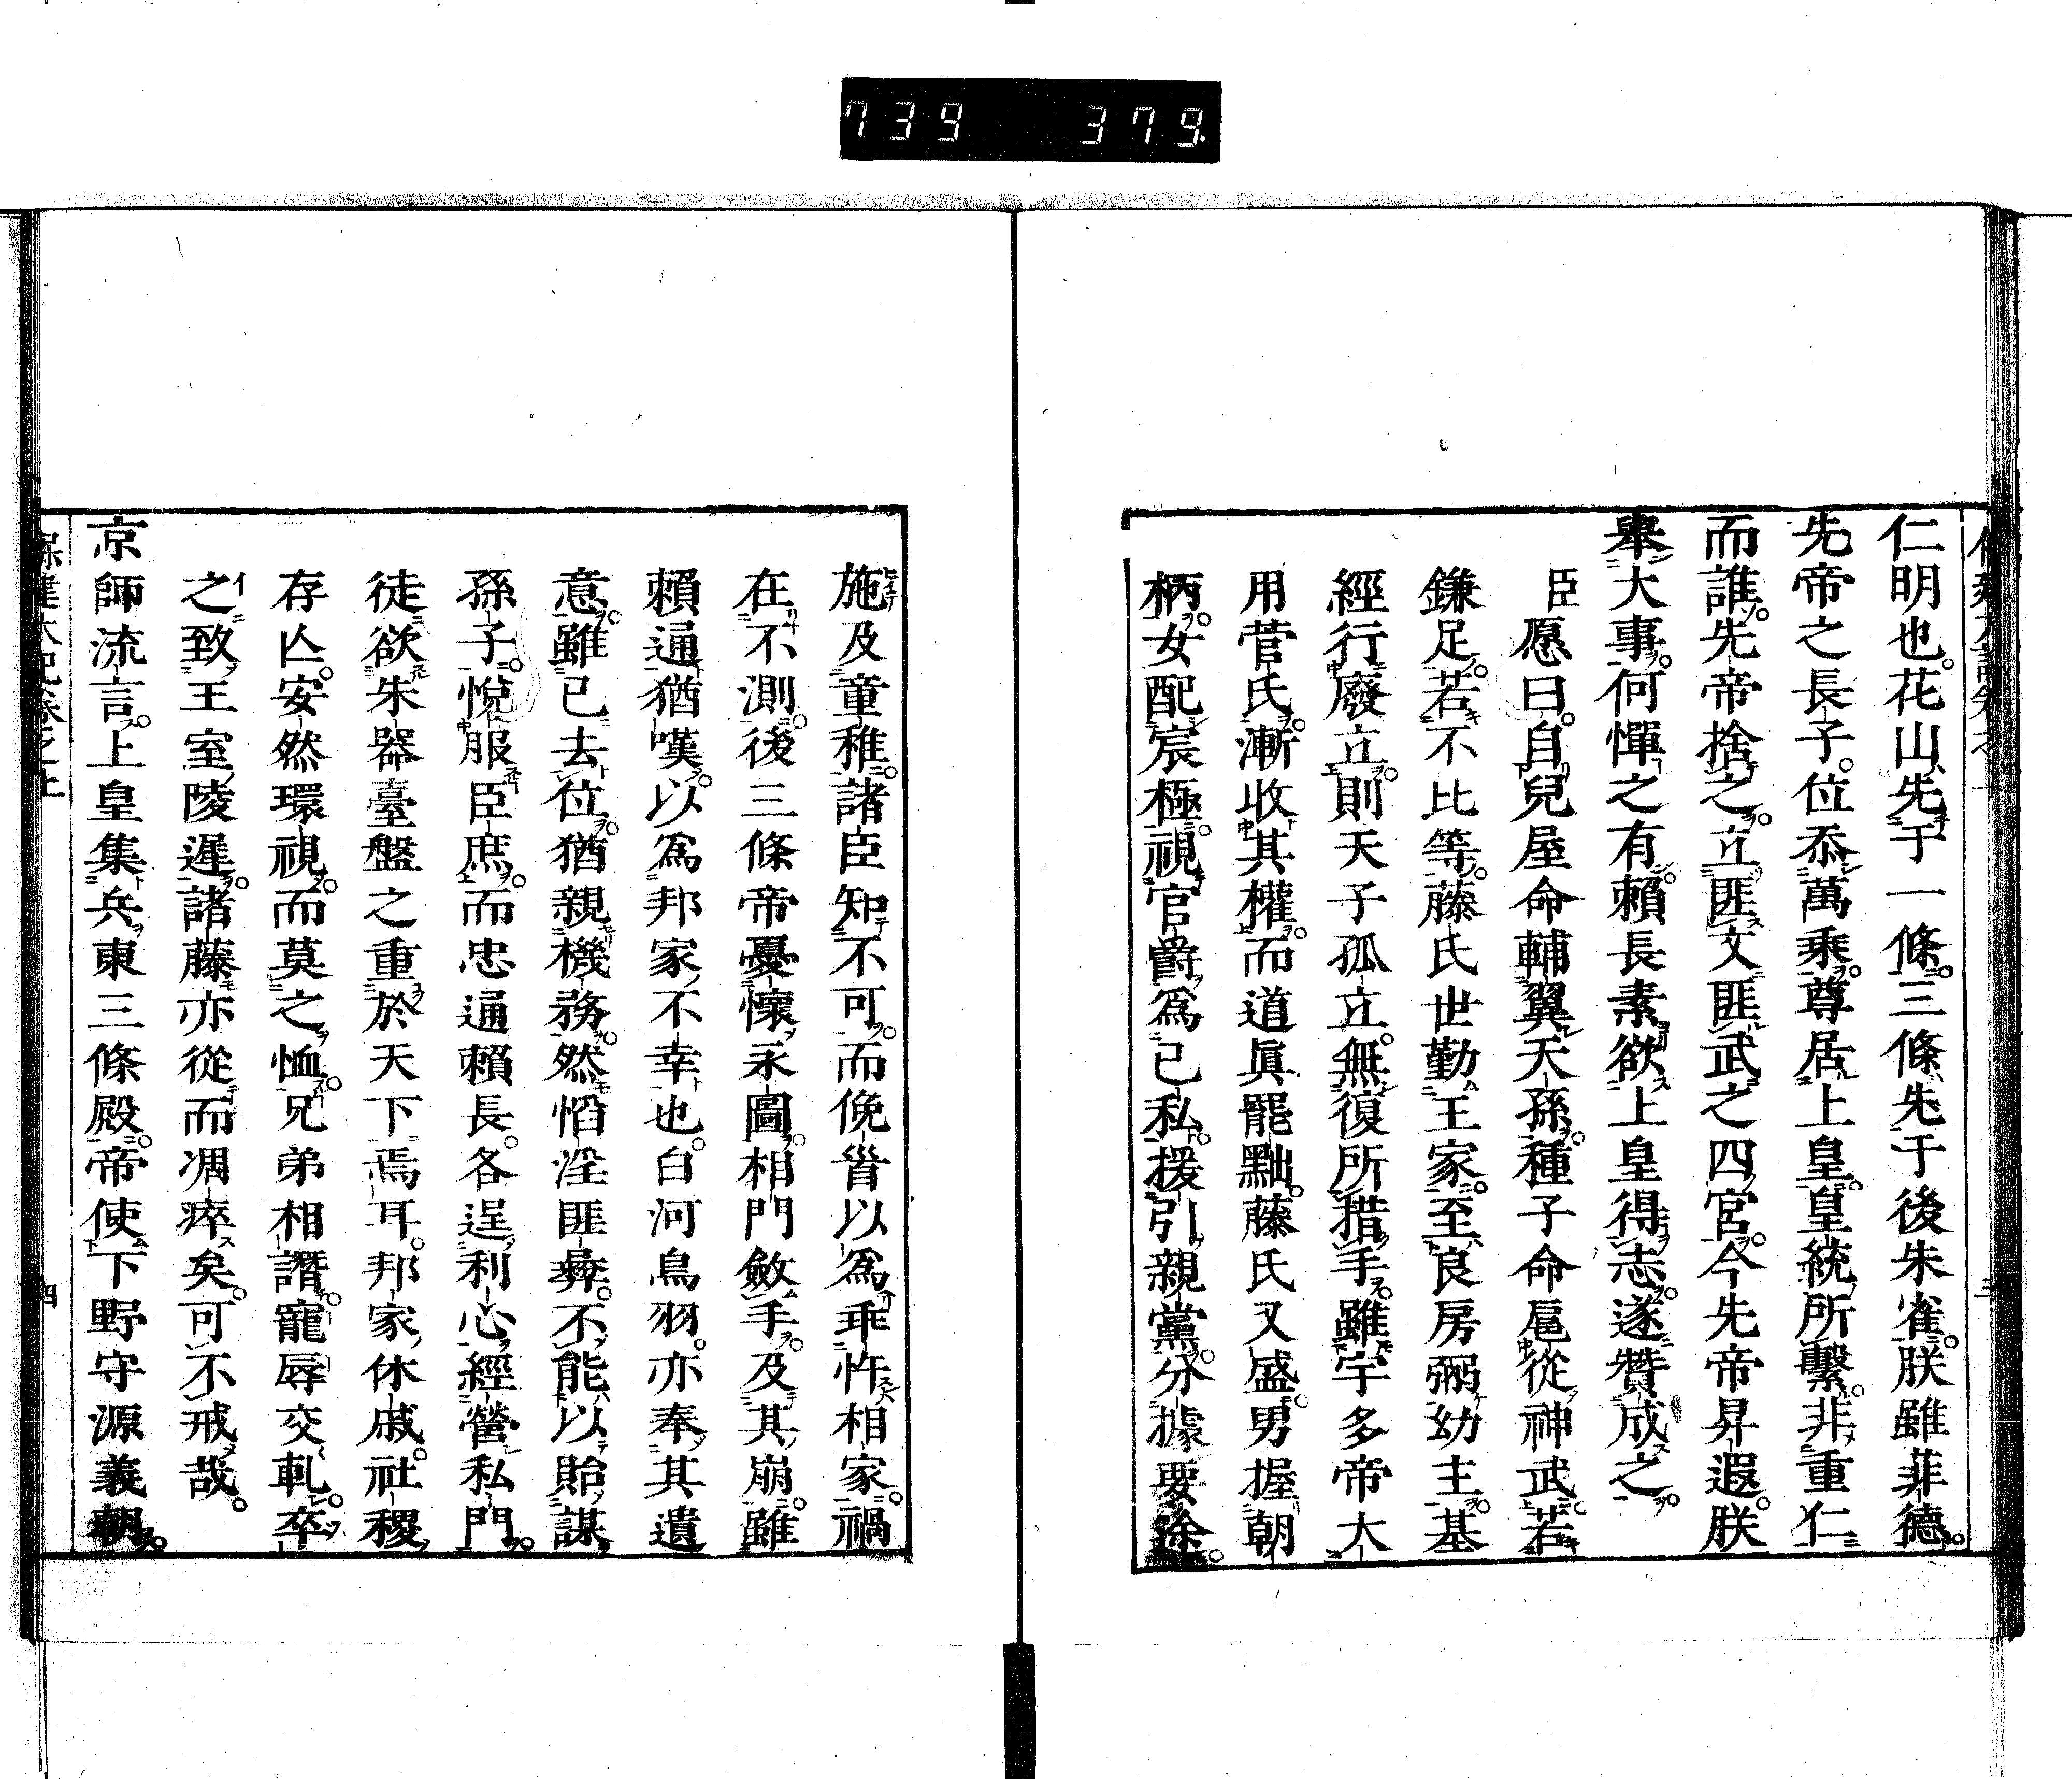 739 379
仁明也。花山先于一條。三條先于後朱雀。朕雖菲德。
先帝之長子。位忝萬乘。尊居上皇。皇統所繫。非重仁
而誰。先帝捨之。立匪文匪武之四宮。今先帝昇遐。朕
舉大事。何憚之有。賴長素欲上皇得志。遂贊成之。
臣愿曰。自兒屋命輔翼天孫。種子命扈從神武。若
鎌足。若不比等。藤氏世勤王家。至良房弼幼主。基
經行廢立。則天子孤立。無復所措手。雖宇多帝大
用菅氏。漸收其權。而道眞罷黜。藤氏又盛。男握朝
柄。女配宸極。視官爵爲己私。援引親黨。分據要途。
施及童稚。諸臣知不可。而俛首以爲乖忤相家。禍
在不測。後三條帝憂懷永圖。相門斂手。及其崩。雖
賴通猶嘆。以爲邦家不幸也。白河鳥羽。亦奉其遺
意。雖已去位。猶親機務。然慆淫匪彝。不能以貽謀
孫子。悅服臣庶。而忠通賴長。各逞利心。經營私門。
徒欲朱器臺盤之重於天下焉耳。邦家休戚。社稷
存亾。安然環視。而莫之恤。兄弟相譖。寵辱交軋。卒
之致王室陵遲。諸藤亦從而凋瘁矣。可不戒哉。
京師流言。上皇集兵東三條殿。帝使下野守源義朝。
保建大記卷之上
四